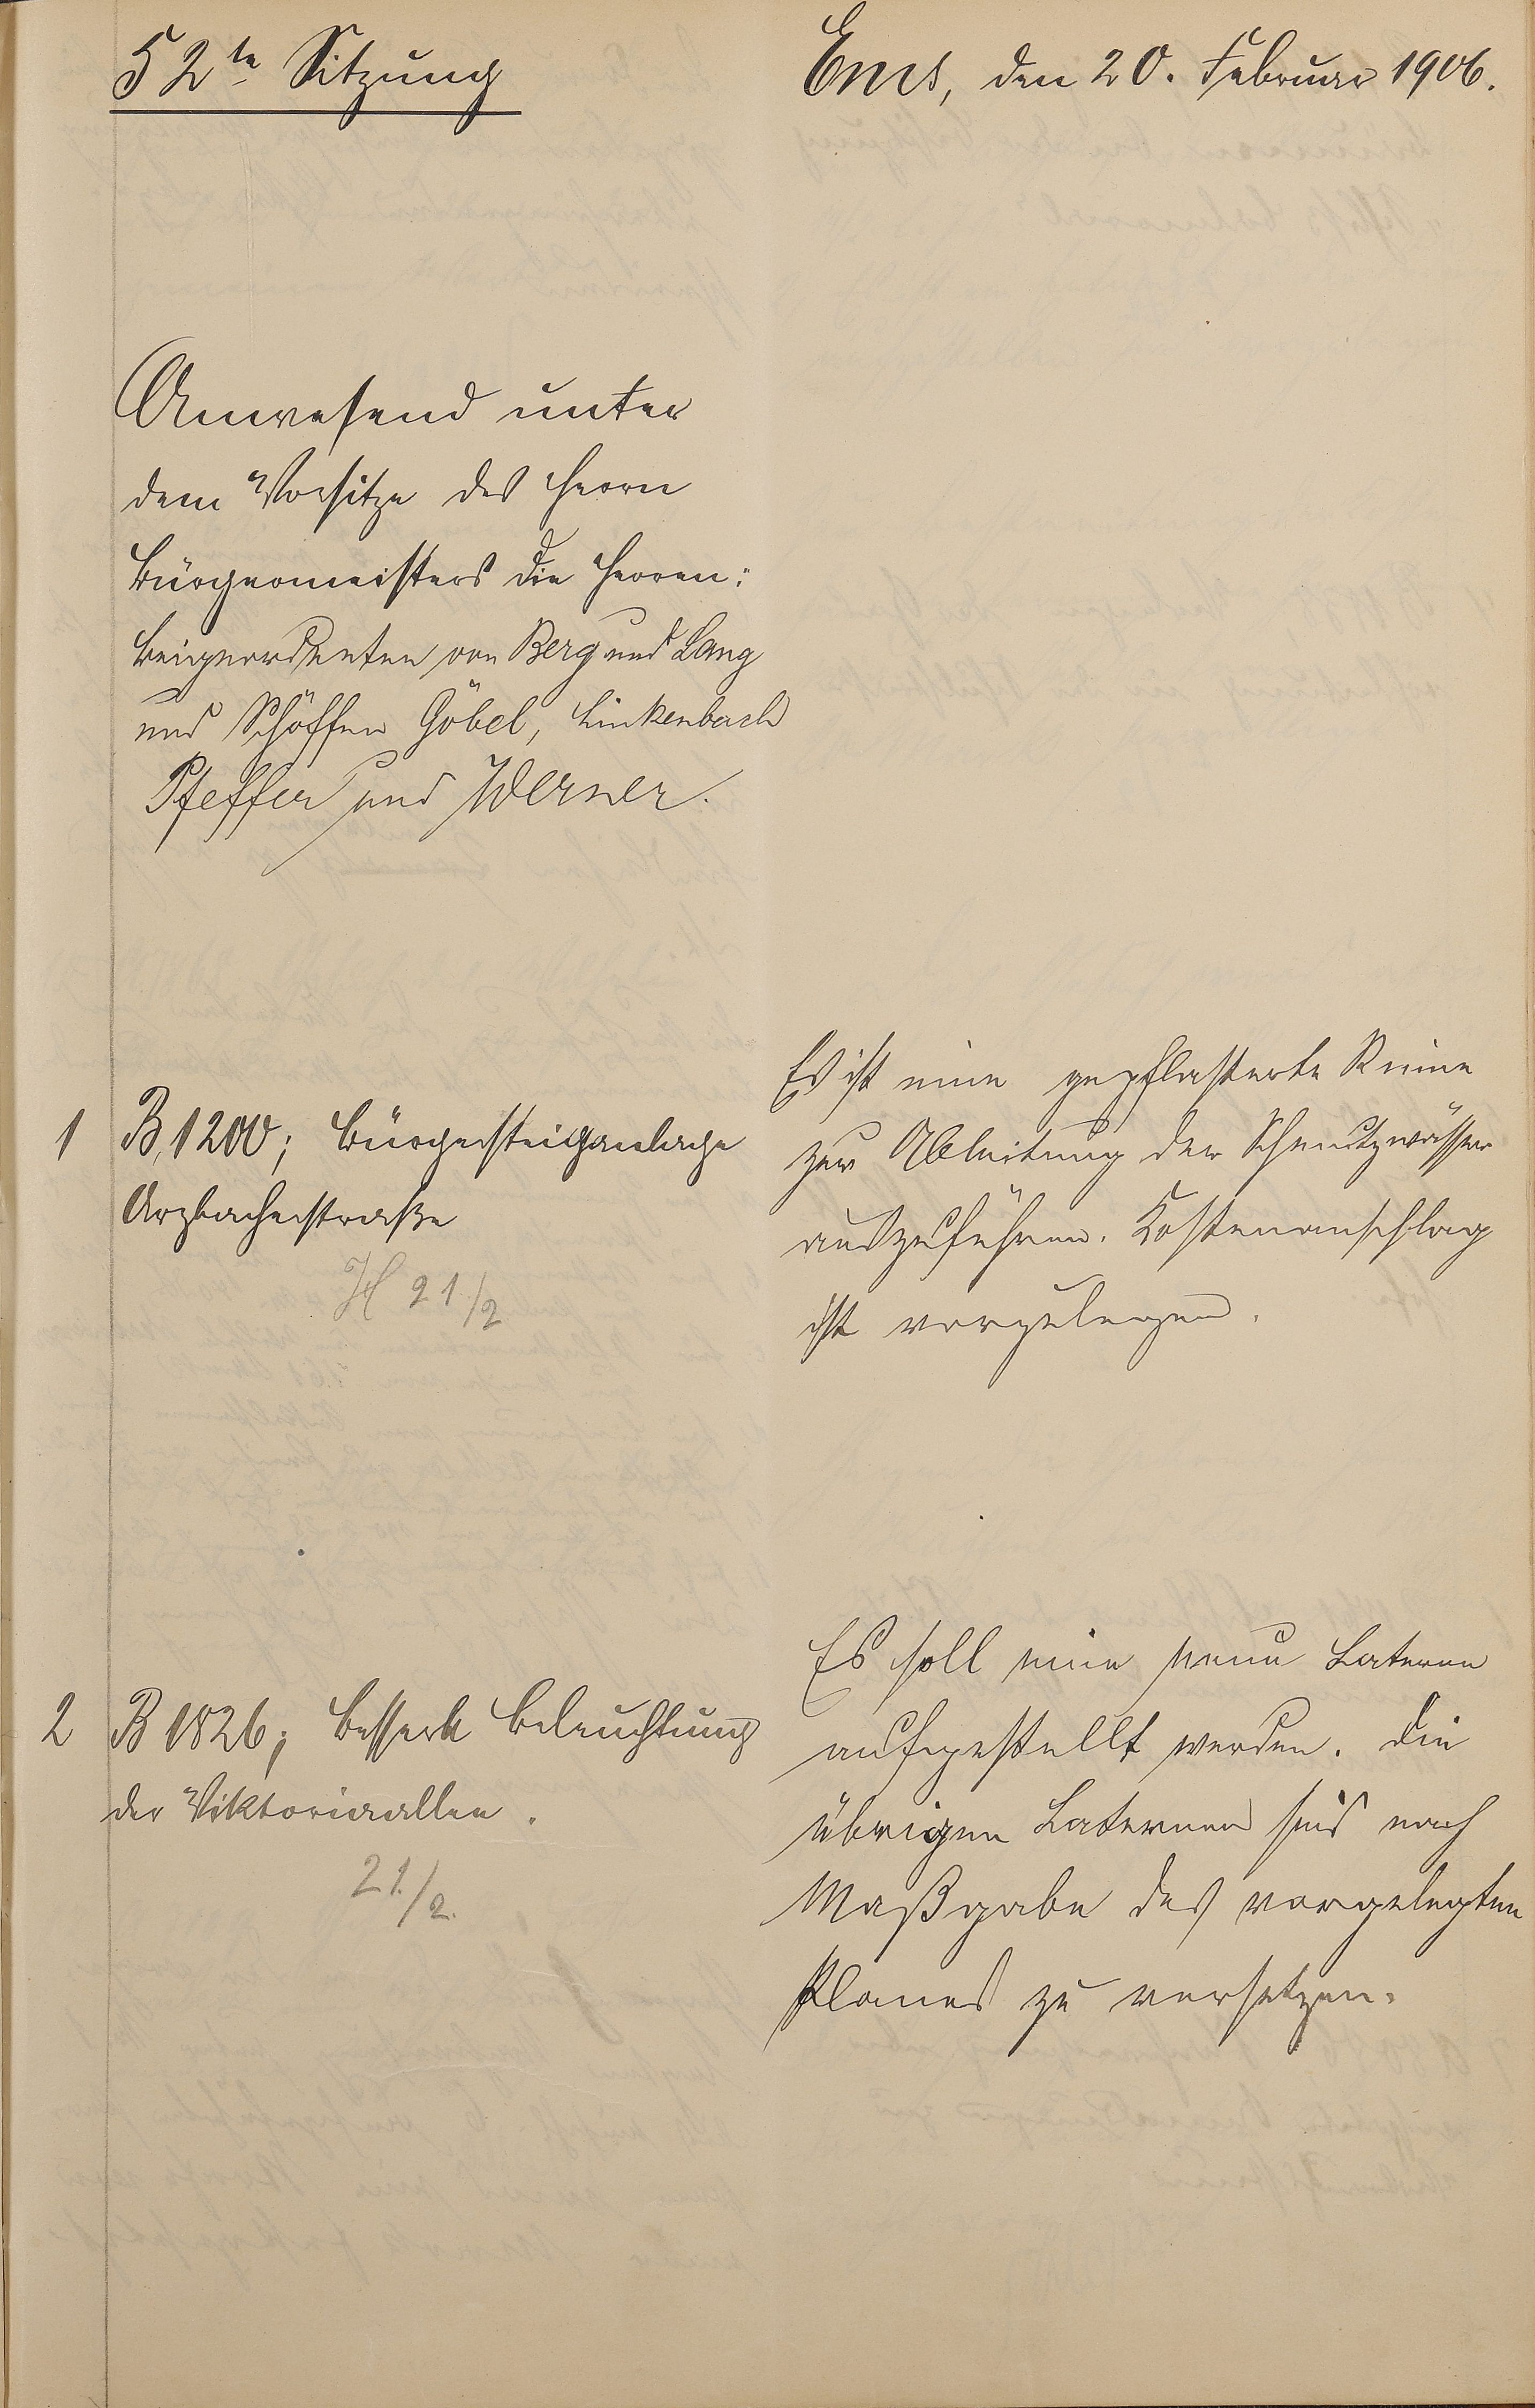 52te Sitzung
Ems, den 20. Februar 1906.
Anwesend unter
dem Vorsitze des Herrn
Bürgermeisters die Herren:
Beigeordneten von Berg und Lang
und Schöffen Göbel, Linkenbach
Pfeffer und Werner.
1 B, 1200; Bürgersteiganlage
Arzbacherstraße
H 21/2
Es ist eine gepflasterte Rinne
zur Ableitung der Schmutzwässer
auszuführen. Kostenanschlag
ist vorzulegen.
2 B 1826; bessere Beleuchtung
der Viktoriaallee.
21./2.
Es soll eine neue Laterne
aufgestellt werden. Die
übrigen Laternen sind nach
Maßgabe des vorgelegten
Planes zu versetzen.